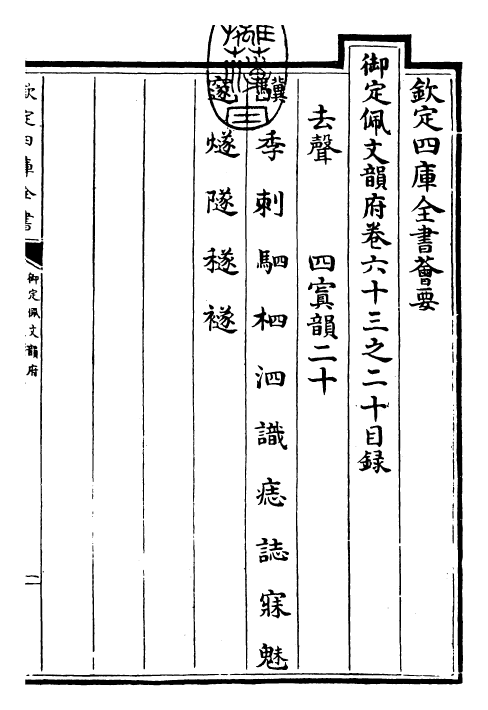 欽定四庫全書薈要
御定佩文韻府卷六十三之二十目録
去聲 四寘韻二十
驥季刺駟柶泗識痣誌寐魅
邃燧隧穟襚
欽定四庫全書
御定佩文韻府
一